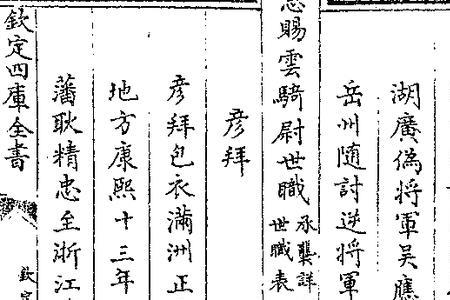 湖廣偽將軍吳應
岳州隨討逆將軍
賜雲騎尉世職承襲詳
世職表
彥拜
彥拜包衣滿洲正
地方康熙十三年
藩耿精忠至浙江
欽定四庫全書
欽定